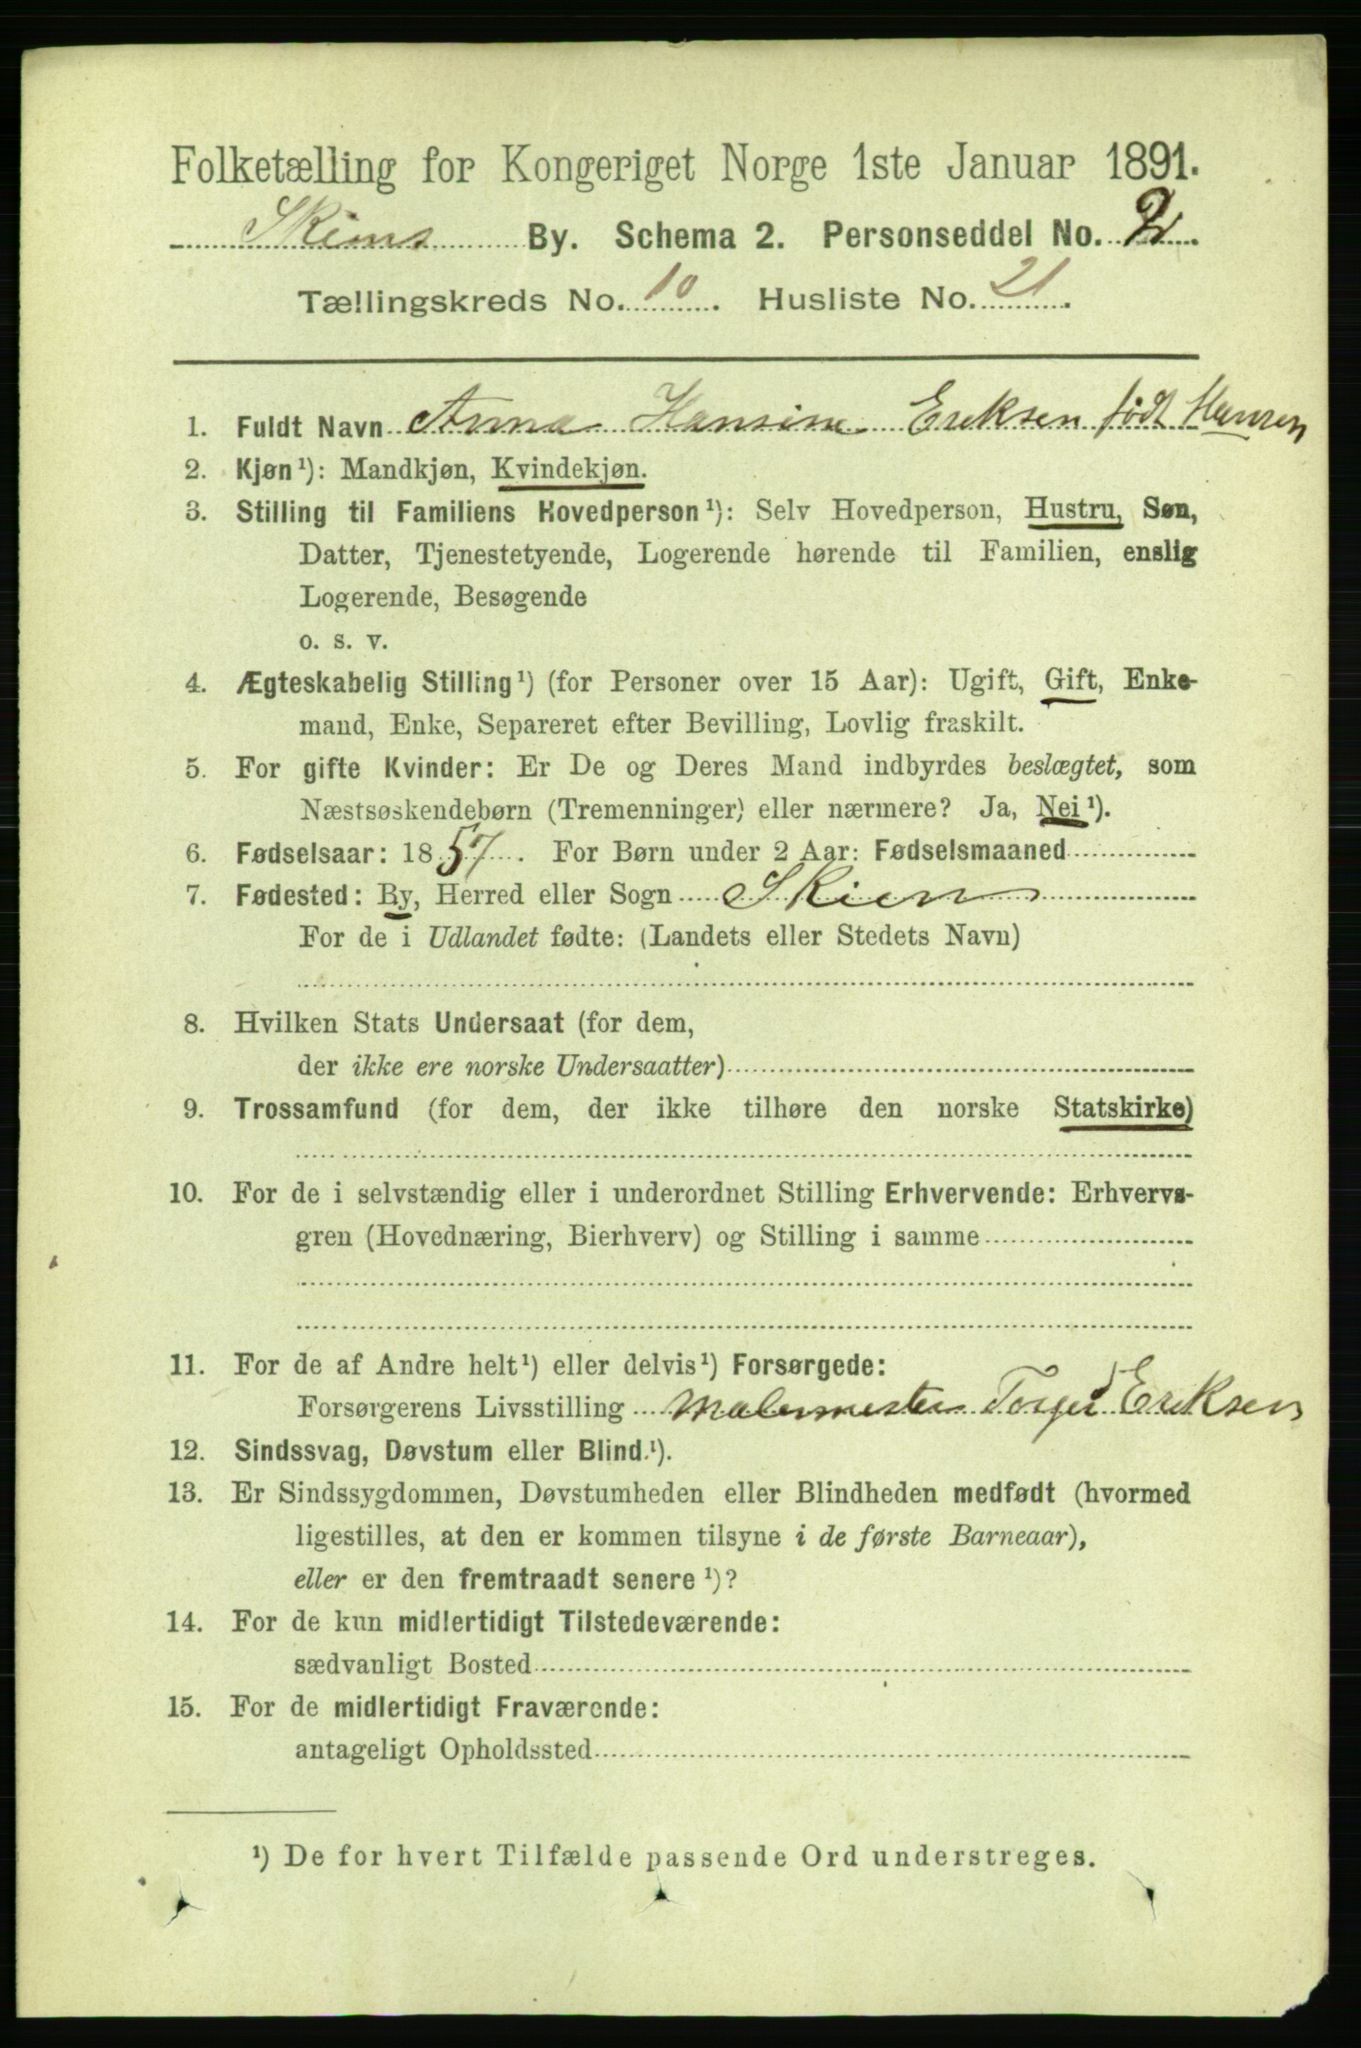 Folketælling for Kongeriget Norge 1ste Januar 1891.
Skiens By. Schema 2. Personseddel No. 2.
Tællingskreds No. 10. Husliste No. 21.
1. Fuldt Navn Anna Hansine Eriksen født Hansen
2. Kjøn¹): Mandkjøn, Kvindekjøn.
3. Stilling til Familiens Hovedperson¹): Selv Hovedperson, Hustru, Søn,
Datter, Tjenestetyende, Logerende hørende til Familien, enslig
Logerende, Besøgende
o. s. v.
4. Ægteskabelig Stilling¹) (for Personer over 15 Aar): Ugift, Gift, Enke-
mand, Enke, Separeret efter Bevilling, Lovlig fraskilt.
5. For gifte Kvinder: Er De og Deres Mand indbyrdes beslægtet, som
Næstsøskendebørn (Tremenninger) eller nærmere? Ja, Nei¹).
6. Fødselsaar: 1857. For Børn under 2 Aar: Fødselsmaaned
7. Fødested: By, Herred eller Sogn Skien
For de i Udlandet fødte: (Landets eller Stedets Navn)
8. Hvilken Stats Undersaat (for dem,
der ikke ere norske Undersaatter)
9. Trossamfund (for dem, der ikke tilhøre den norske Statskirke)
10. For de i selvstændig eller i underordnet Stilling Erhvervende: Erhvervs-
gren (Hovednæring, Bierhverv) og Stilling i samme
11. For de af Andre helt¹) eller delvis¹) Forsørgede:
Forsørgerens Livsstilling Malermester Torger Eriksen
12. Sindssvag, Døvstum eller Blind.¹).
13. Er Sindssygdommen, Døvstumheden eller Blindheden medfødt (hvormed
ligestilles, at den er kommen tilsyne i de første Barneaar),
eller er den fremtraadt senere¹)?
14. For de kun midlertidigt Tilstedeværende:
sædvanligt Bosted
15. For de midlertidigt Fraværende:
antageligt Opholdssted
¹) De for hvert Tilfælde passende Ord understreges.